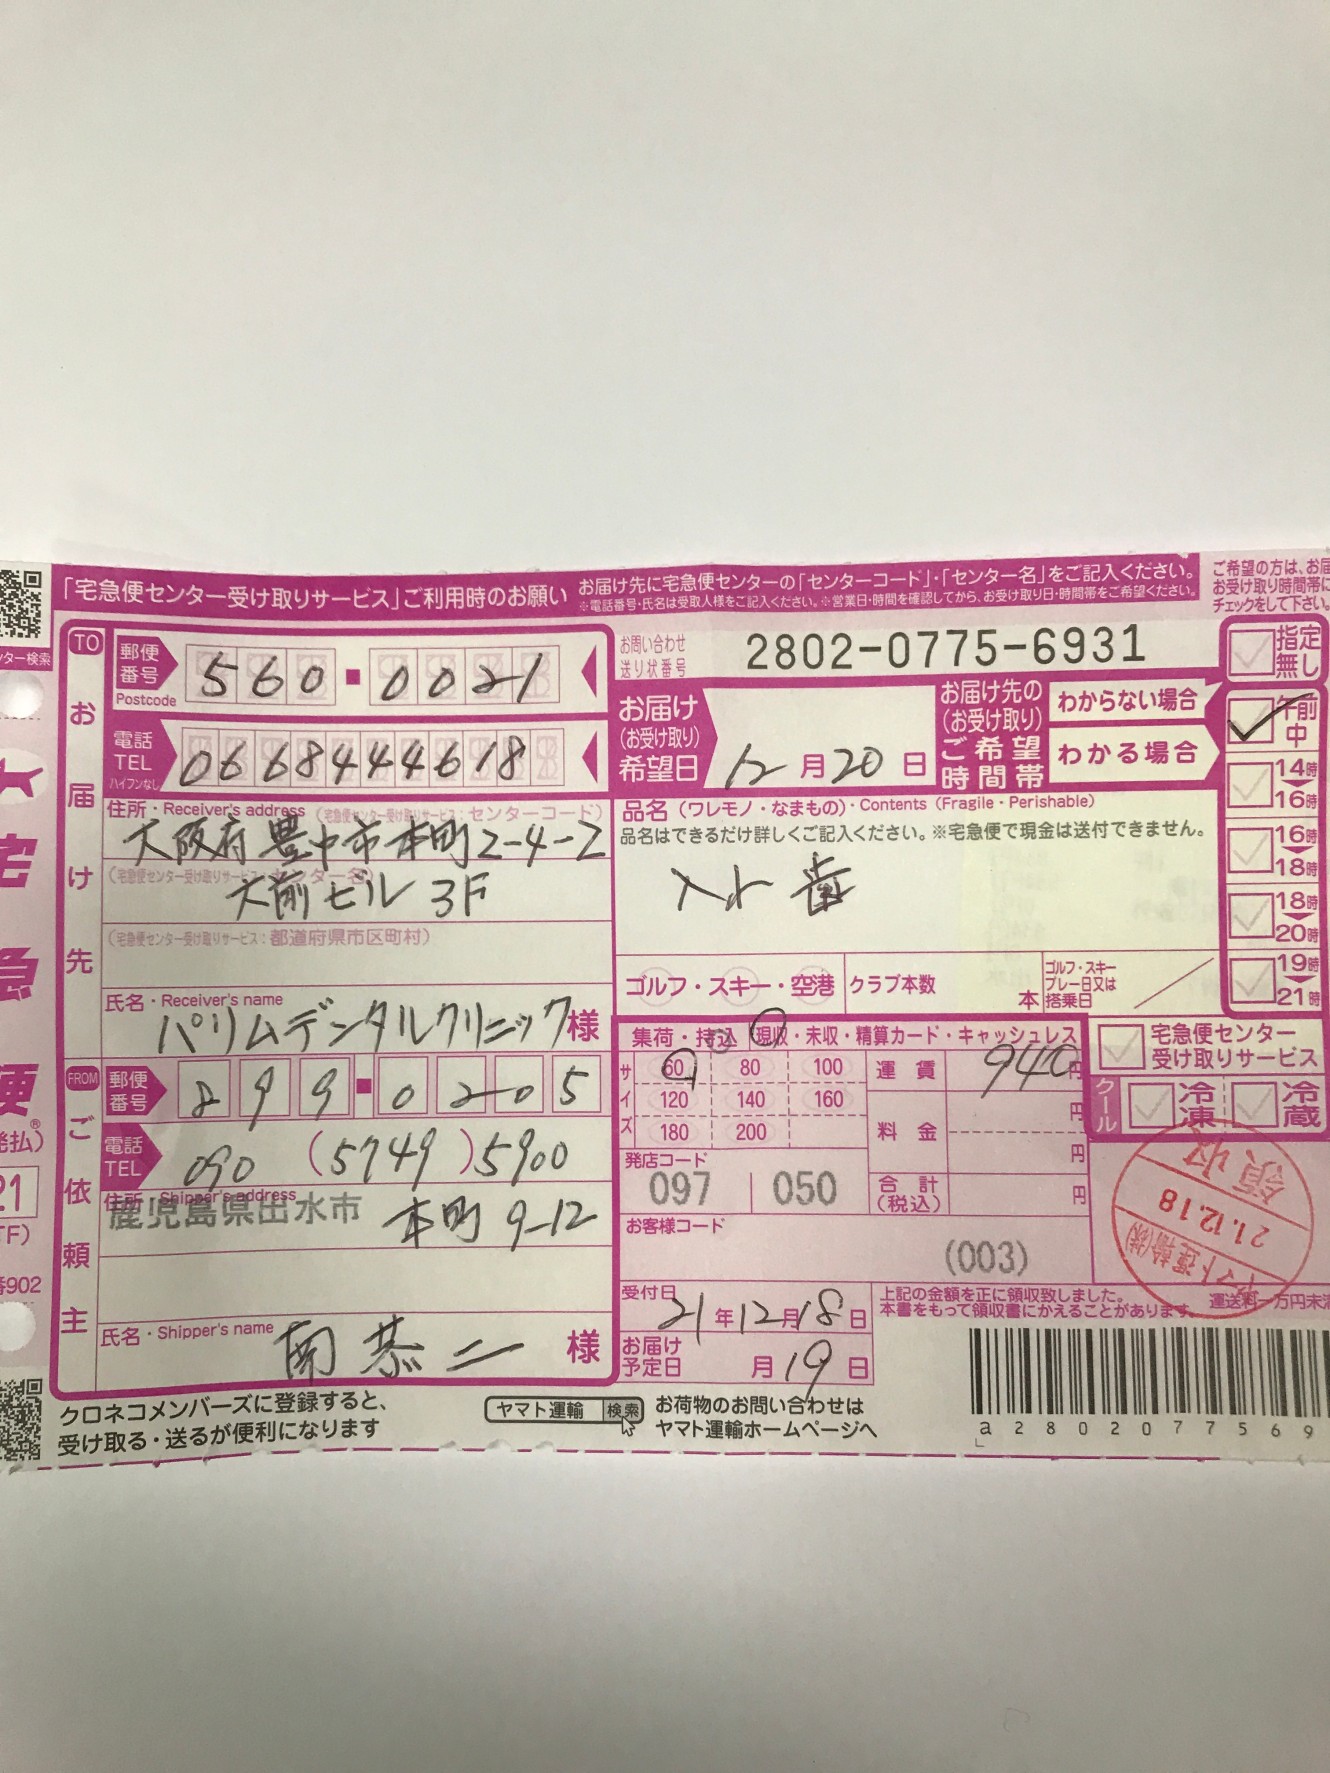 「宅急便センター受け取りサービス」ご利用時のお願い
お届け先に宅急便センターの「センターコード」・「センター名」をご記入ください。
※電話番号・氏名は受取人様をご記入ください。※営業日・時間を確認してから、お受け取り日・時間帯をご希望ください。
ご希望の方は、お届
お受け取り時間帯に
チェックをして下さい。
ター検索
宅
急
便
発払)
21
TF)
番902
TO
お届け先
郵便番号
Postcode
560-0021
電話
TEL
ハイフンなし
0668444618
住所・Receiver's address (宅急便センター受け取りサービス:センターコード)
大阪府豊中市本町2-4-2
(宅急便センター受け取りサービス:センター名)
大前ビル 3F
(宅急便センター受け取りサービス:都道府県市区町村)
氏名・Receiver's name
パリムデンタルクリニック様
FROM
ご依頼主
郵便番号
899-0205
電話
TEL
090 (5749)5900
住所・Shipper's address
鹿児島県出水市 本町 9-12
氏名・Shipper's name
南 恭二 様
お問い合わせ
送り状番号
2802-0775-6931
お届け
(お受け取り)
希望日
12月20日
お届け先の
(お受け取り)
ご希望
時間帯
わからない場合
わかる場合
指定無し
午前中
14時
16時
16時
18時
18時
20時
19時
21時
品名(ワレモノ・なまもの)・Contents (Fragile・Perishable)
品名はできるだけ詳しくご記入ください。※宅急便で現金は送付できません。
入れ歯
ゴルフ・スキー・空港
クラブ本数
本
ゴルフ・スキー
プレー日又は
搭乗日
宅急便センター
受け取りサービス
クール
冷凍
冷蔵
集荷・持込 現収・未収・精算カード・キャッシュレス
サイズ
60 80 100
120 140 160
180 200
運賃 940円
料金
円
円
合計
(税込)
円
発店コード
097 050
お客様コード
(003)
受付日
21年12月18日
お届け
予定日
月19日
上記の金額を正に領収致しました。
本書をもって領収書にかえることがあります。
運送料一万円未満
領収
21.12.18
ヤマト運輸(株)
a2802077569
クロネコメンバーズに登録すると、
受け取る・送るが便利になります
ヤマト運輸 検索
お荷物のお問い合わせは
ヤマト運輸ホームページへ